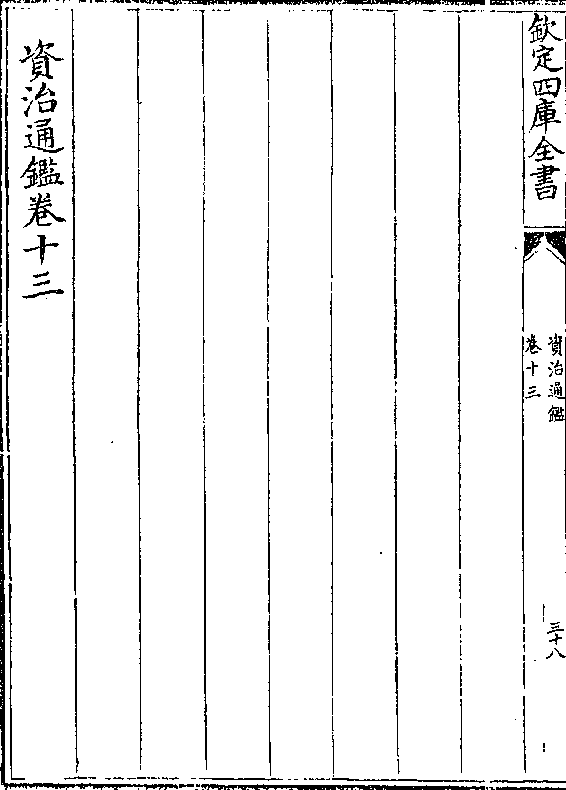 欽定四庫全書
資治通鑑
卷十三
三十八
資治通鑑卷十三